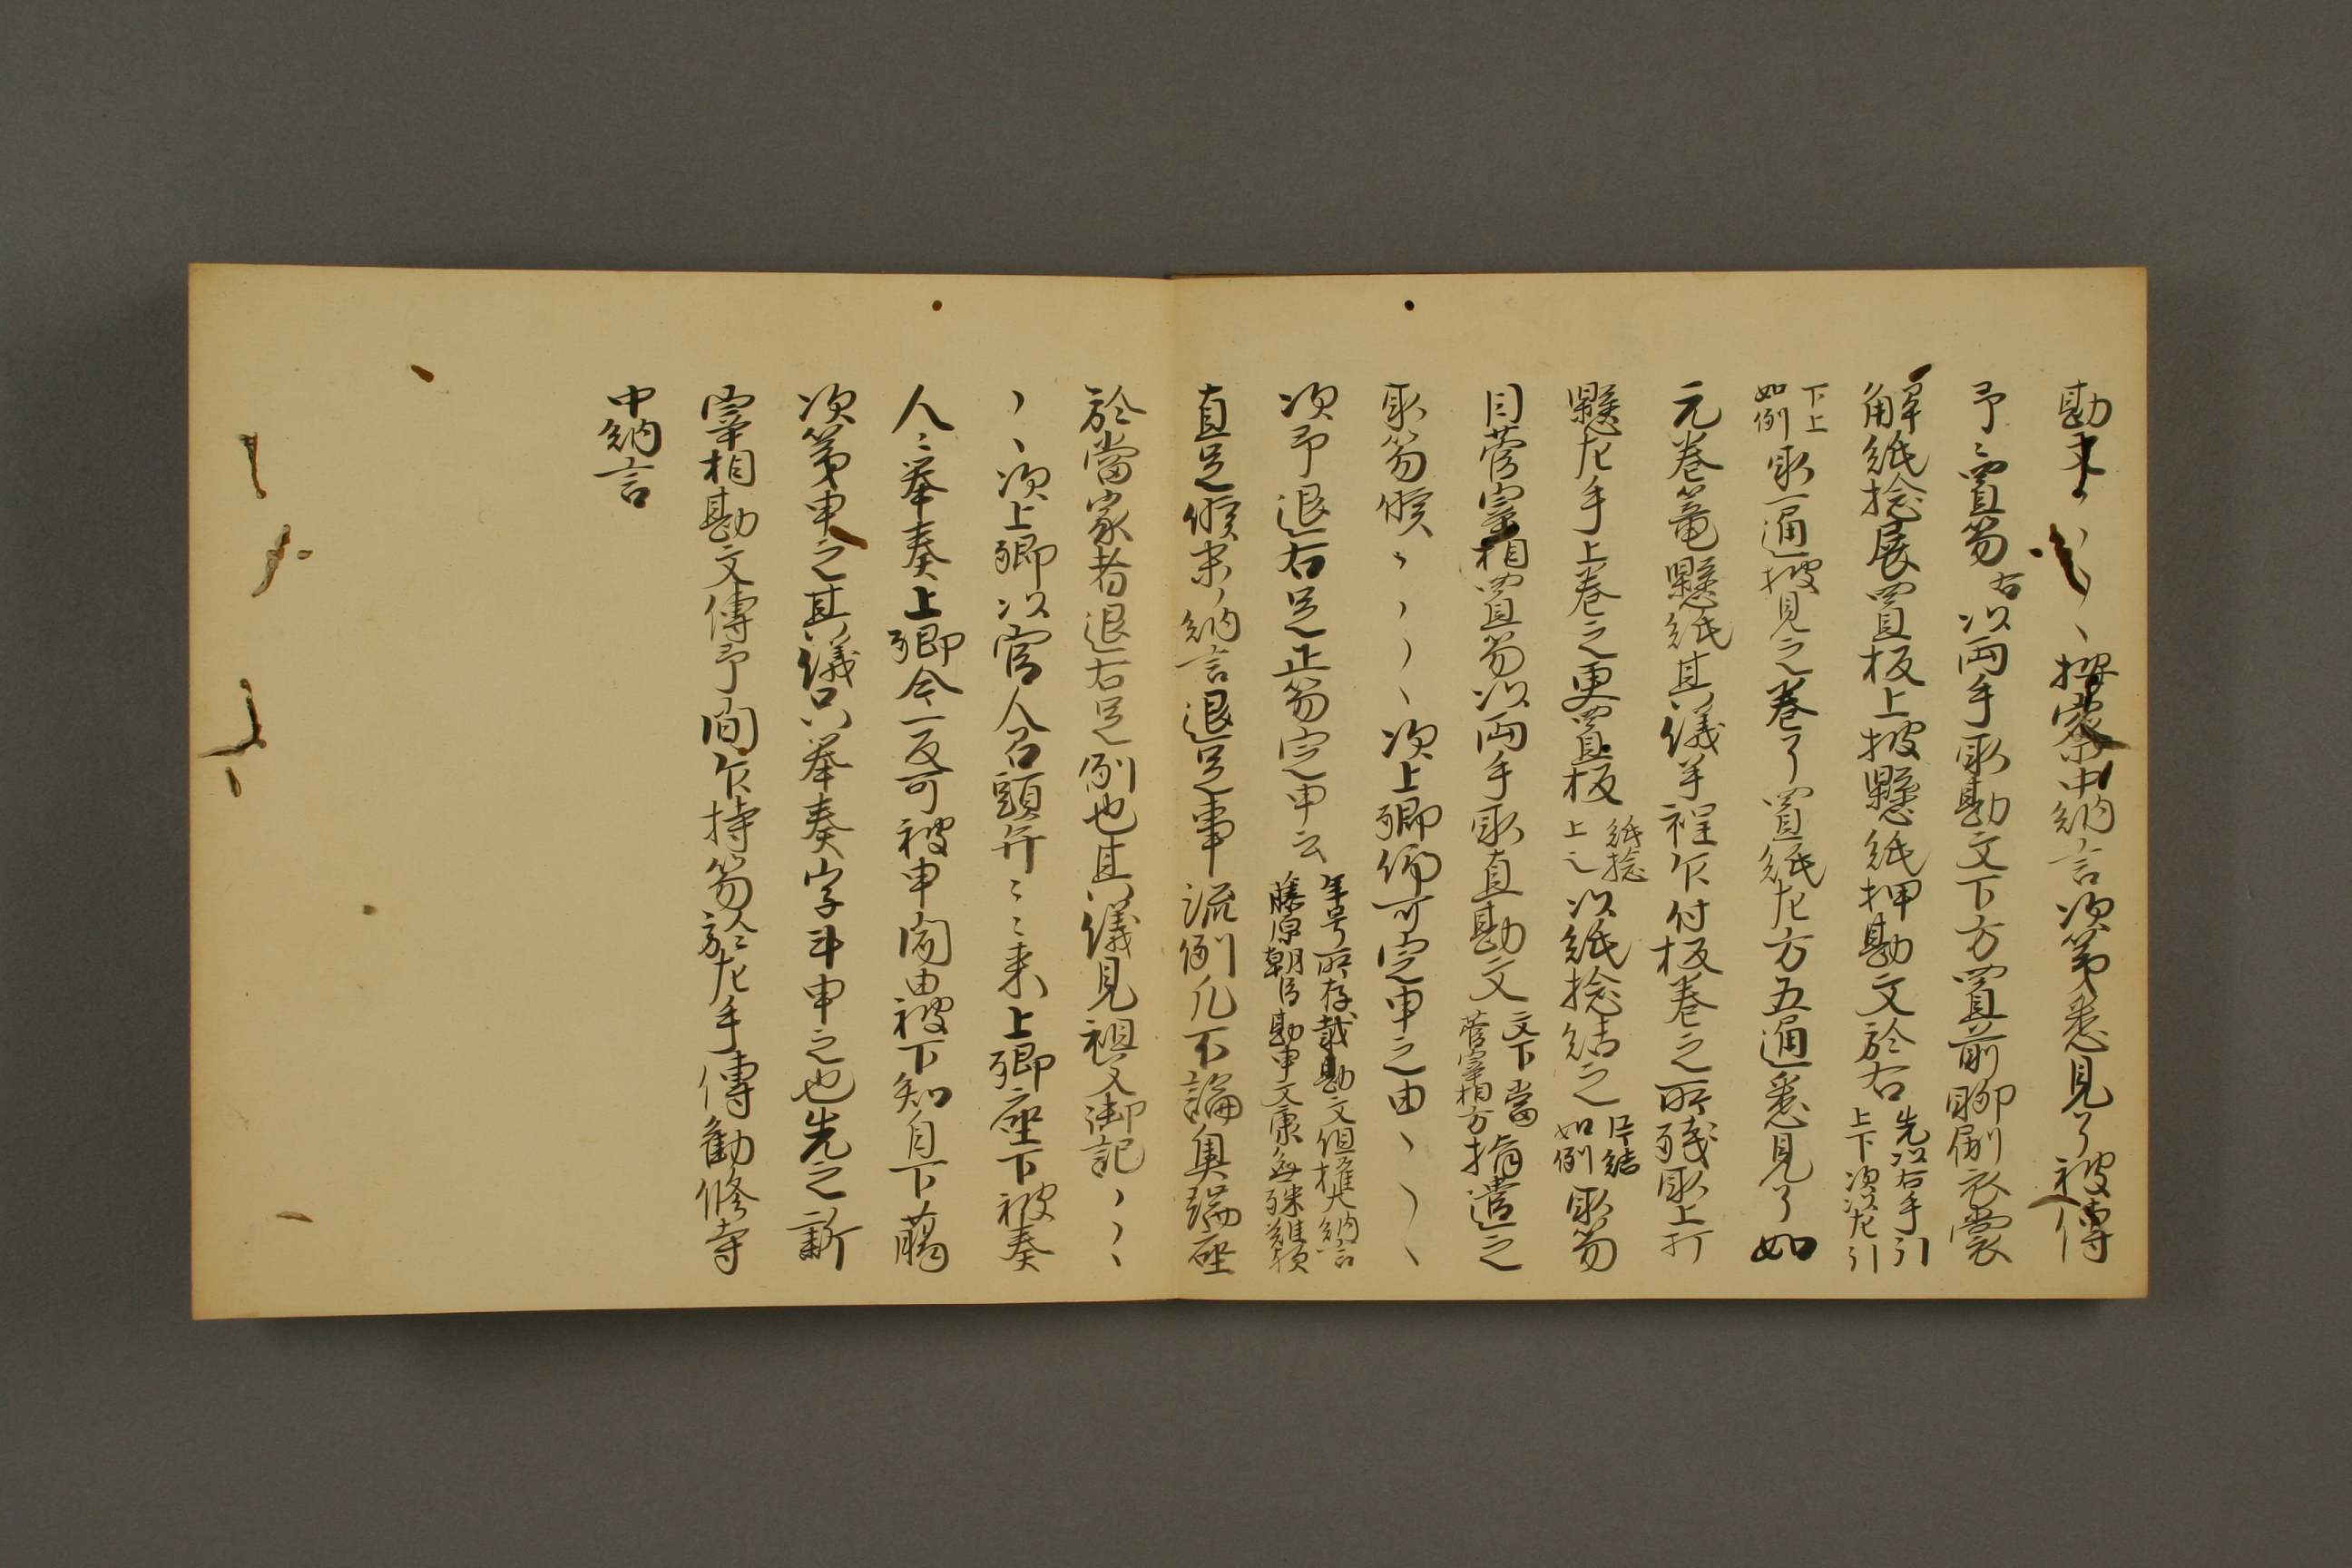 勘文、、、、按察中納言次第悉見了被傳
予〻置笏右以両手取勘文下方置前聊刷衣裳
解紙捻展置板上披懸紙押勘文於右先以右手引上下次以左引
下上如例取一通披見之巻了置紙左方五通悉見了如
元巻篭懸紙其儀羊裎乍付板巻之所残取上打
懸左手上巻之更置板紙捻上之以紙捻結之片結如例取笏
目菅宰相置笏以両手取直勘文文下當菅宰相方指遣之
取笏候、、、、、次上卿仰可定申之由、、、、
次予退右足正笏定申云年号所存載勘文但權大納言藤原朝臣勘申文康無殊難歟
直足候末、納言退足事流例凡不論奥端座
於當家者退右足例也其儀見祖父御記、、、
、、次上卿以官人召頭弁〻〻来上卿座下被奏
人〻挙奏上卿令一反可被申聞由被下知自下﨟
次第申之其儀只挙奏字斗申之也先之新
宰相勘文傳予間乍持笏於左手傳勧修寺
中納言